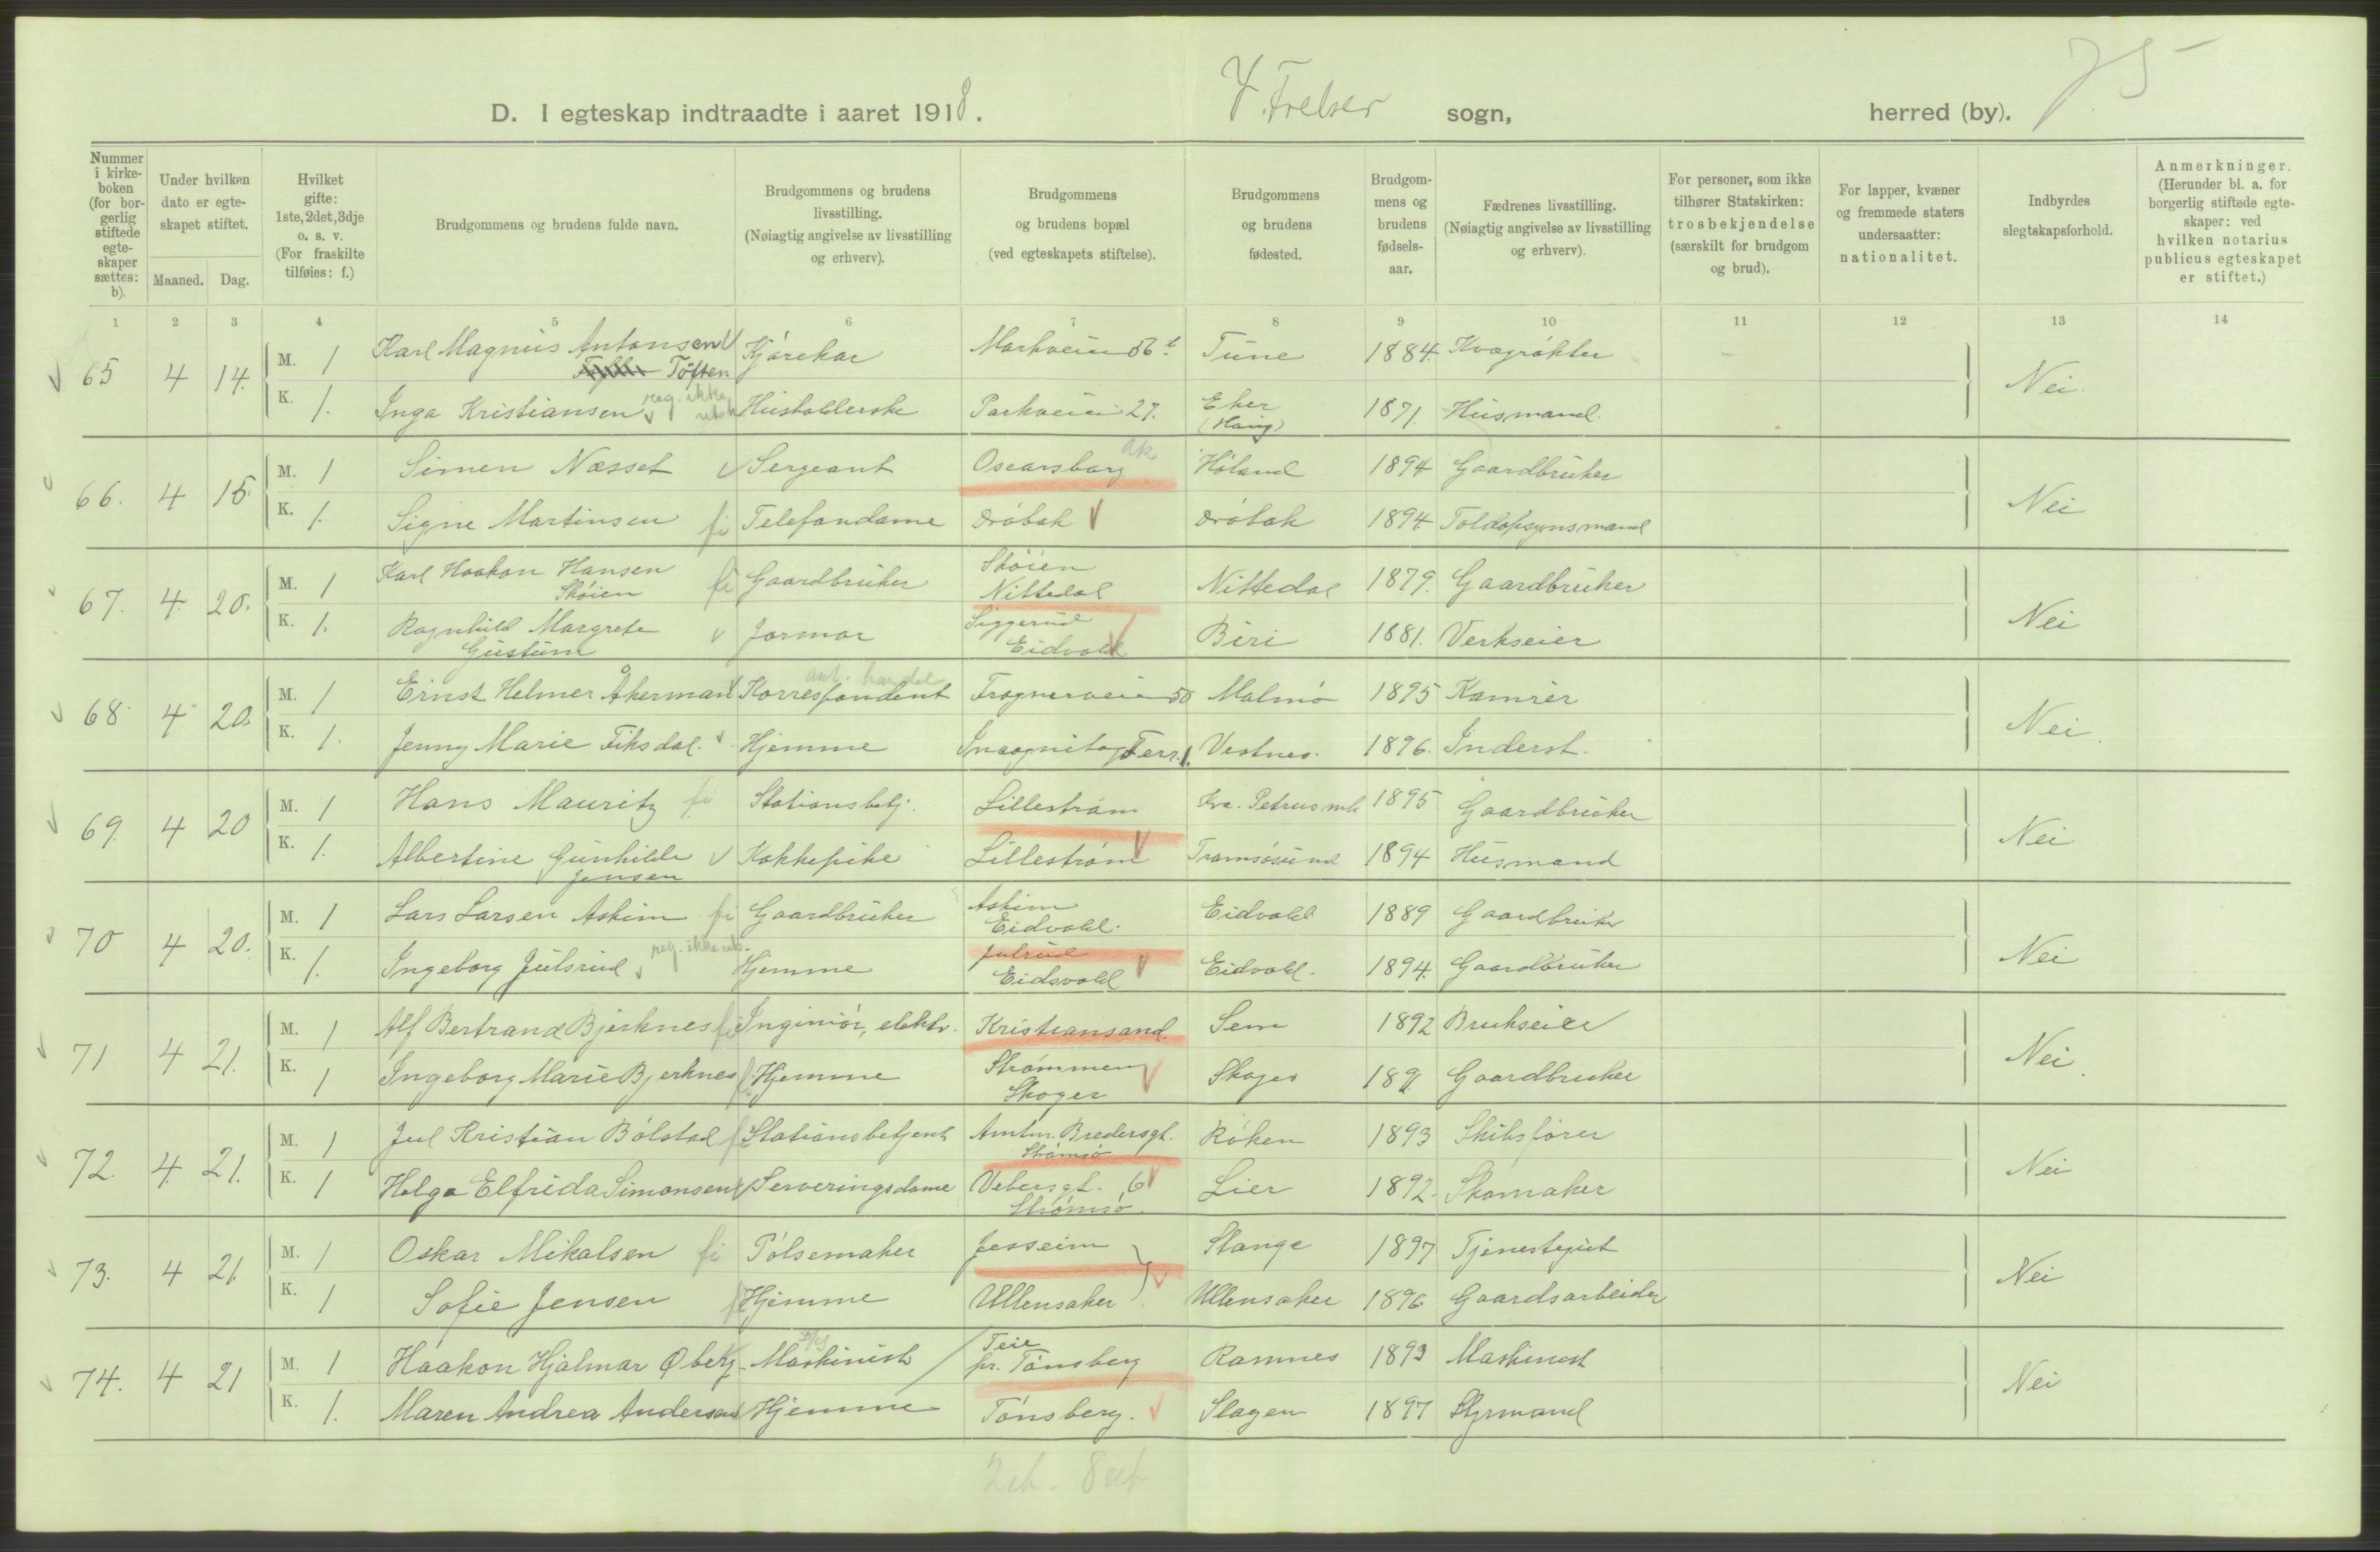 75
D. I egteskap indtraadte i aaret 1918. V. Frelser sogn, herred (by).
Nummer i kirkeboken (for borgerlig stiftede egteskaper sættes: b).
Under hvilken dato er egteskapet stiftet.
Maaned. Dag.
Hvilket gifte: 1ste, 2det, 3dje o. s. v. (For fraskilte tilføies: f.)
Brudgommens og brudens fulde navn.
Brudgommens og brudens livsstilling. (Nøiagtig angivelse av livsstilling og erhverv).
Brudgommens og brudens bopæl (ved egteskapets stiftelse).
Brudgommens og brudens fødested.
Brudgommens og brudens fødselsaar.
Fædrenes livsstilling. (Nøiagtig angivelse av livsstilling og erhverv).
For personer, som ikke tilhører Statskirken: trosbekjendelse (særskilt for brudgom og brud).
For lapper, kvæner og fremmede staters undersaatter: nationalitet.
Indbyrdes slegtskapsforhold.
Anmerkninger. (Herunder bl. a. for borgerlig stiftede egteskaper: ved hvilken notarius publicus egteskapet er stiftet.)
1 2 3 4 5 6 7 8 9 10 11 12 13 14
65 4 14. M. 1 Karl Magnus Antonsen Töften Kjørekar Markveien 56 b Tune 1884. Kvægrøkter Nei.
K. 1. Inga Kristiansen reg. ikke Husholderske Parkveien 27. Eker (Haug) 1871. Husmand.
66. 4 15. M. 1 Simen Næsset Sergeant Oscarsborg ak Høland 1894 Gaardbruker Nei
K. 1. Signe Martinsen fi Telefondame Drøbak Drøbak 1894. Toldopsynsmand
67. 4. 20. M. 1 Karl Haakon Hansen Skøien fi Gaardbruker Skøien Nittedal Nittedal 1879. Gaardbruker Nei
K. 1. Ragnhild Margrete Gustum Jormor Siggerud Eidvold Biri 1881. Verkseier
68. 4 20. M. 1 Ernst Helmer Åkerman Korrespondent ant. handel Frognerveien 50 Malmø 1895 Kamrér Nei.
K. 1. Jenny Marie Fiksdal. Hjemme Incognitog Terr. 1. Vestnes. 1896. Inderst.
69. 4 20 M. 1 Hans Mauritz fi Stationsbetj. Lillestrøm 1895 Gaardbruker Nei
K. 1. Albertine Gunhilde Jensen Kokkepike Lillestrøm Tromsøsund 1894 Husmand
70 4 20. M. 1 Lars Larsen Askim fi Gaardbruker Askim Eidvold. Eidvold 1889 Gaardbruker Nei
K. 1. Ingeborg Julsrud reg. ikke utb. Hjemme Julsrud Eidsvold Eidvold. 1894. Gaardbruker
71 4 21. M. 1 Alf Bertrand Bjerknes fi Inginiør, elektr. Kristiansand. Sem 1892 Brukseier Nei.
K. 1 Ingeborg Marie Bjerknes fi Hjemme Strømmen Skoger Skoger 189 Gaardbruker
72. 4. 21. M. 1 Jul Kristian Bølstad fi Stationsbetjent Amtm. Bredersgt. Strømsø Røken 1893 Skibsfører Nei
K. 1 Helga Elfrida Simonsen Serveringsdame Vebersgt. 6 Strømsø. Lier 1892. Skomaker
73. 4 21 M. 1 Oskar Mikalsen fi Pølsemaker Jesseim Stange 1897 Tjenestegut Nei
K. 1 Sofie Jensen fi Hjemme Ullensaker Ullensaker 1896 Gaardsarbeider
74. 4 21 M. 1 Haakon Hjalmar Øberg Maskinist Teie pr. Tønsberg Ramnes 1893 Maskinist Nei
K. 1. Maren Andrea Andersen Hjemme Tønsberg. Slagen 1897 Styrmand